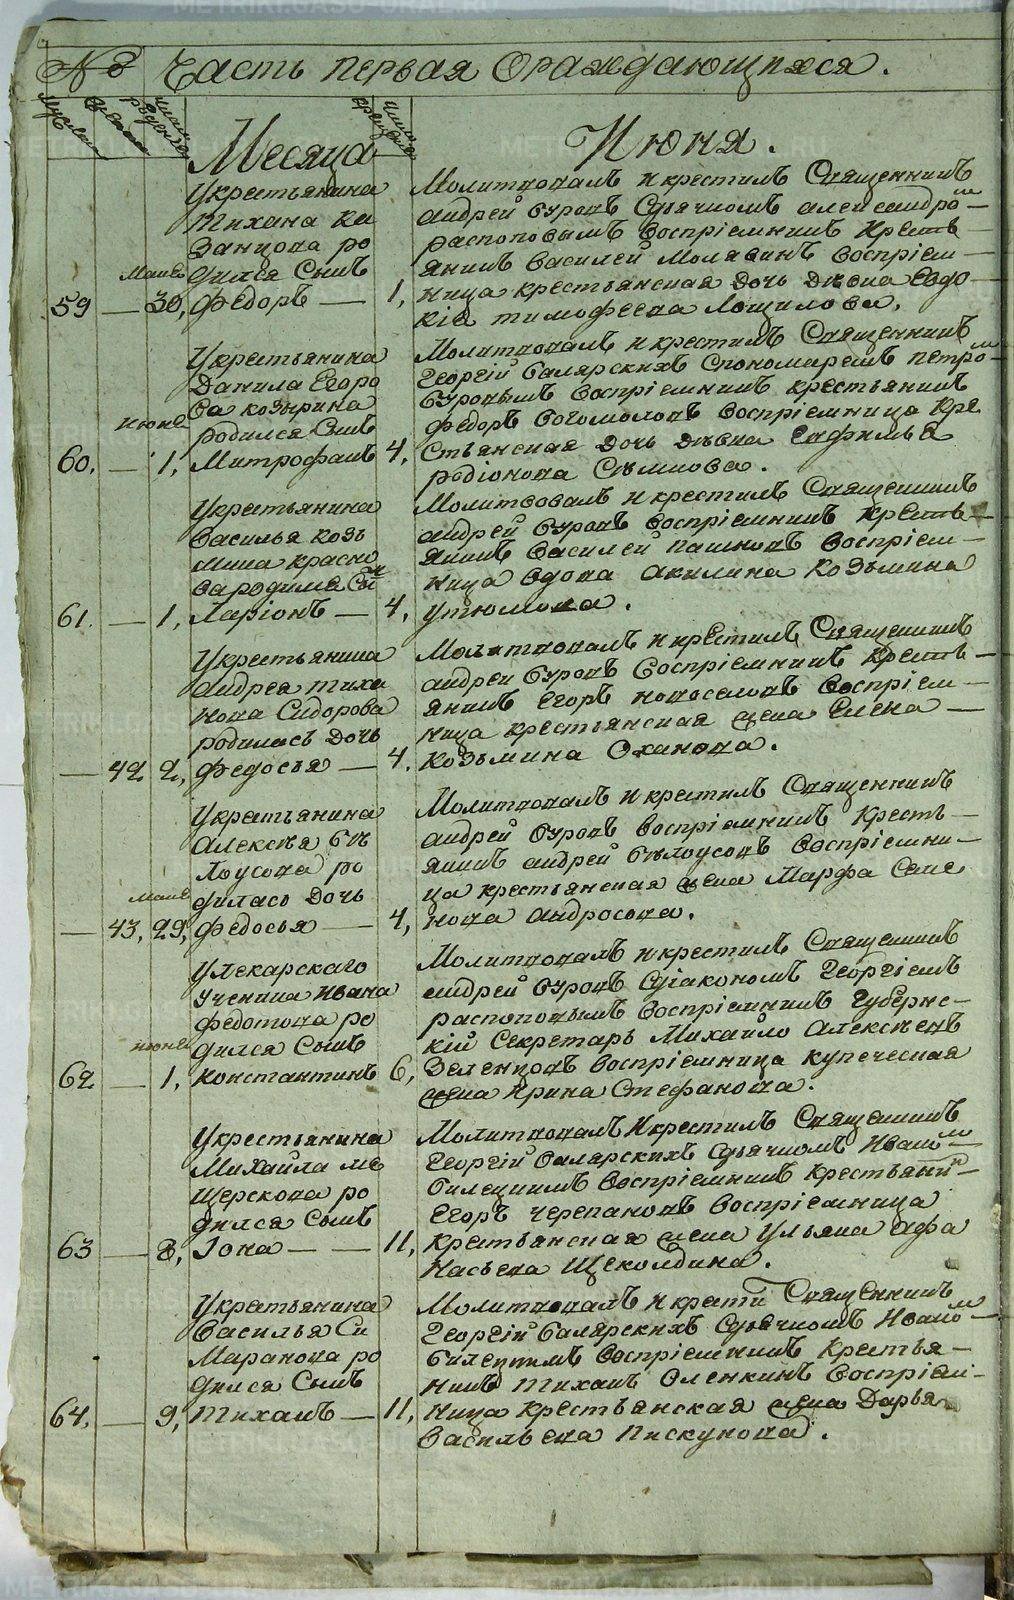 № Часть первая Ораждающихся.
Мужеска
Женска
число рождения
число крещения
Месяца Июня.
Укрестьянина
Тихана Ка
занцова ро
Маия дился Сынъ
59 — 30, Федоръ — 1,
Молитвовалъ и крестилъ Священникъ
андрей Суровъ Сдьячкомъ александро—
распоповымъ воспріемникъ Кресть—
янинъ василей Молявинъ воспріем—
ница крестьянская дочь девка Евдо
кія тимофеева Лощилова.
Укрестьянина
Данила Егоро
ва козырина
июня родился Сынъ
60. — 1, Митрофанъ 4,
Молитвовалъ и крестилъ Священникъ
Георгій балярскихъ Спономаремъ петро—
Суровымъ воспріемникъ крестьянинъ
федоръ богомоловъ воспріемница кре
стьянская дочь девка Евфимья
родіонова
Укрестьянина
василья козь
мина красно
ва родился Сын
61. — 1, Ларіонъ — 4,
Молитвовалъ и крестилъ Священникъ
андрей Суровъ воспріемникъ Кресть—
янинъ василей пашковъ воспріем—
ница вдова акилина козьмина
утюмова.
Укрестьянина
андрея тиха
нова Сидорова
родилась дочь
— 42 2, федосья — 4.
Молитвовалъ и крестилъ Священникъ
андрей Суровъ воспріемникъ Кресть—
янинъ Егоръ новоселовъ воспріем—
ница крестьянская жена Елена —
козьмина Оханова.
Укрестьянина
Алексея бе
лоусова ро
маия дилась дочь
— 43, 29, федосья — 4,
Молитвовалъ и крестилъ Священникъ
андрей Суровъ воспріемникъ Кресть—
янинъ андрей белоусовъ воспріемни—
ца крестьянская жена Марфа Семе
нова андросова.
Улекарскаго
ученика ивана
федотова ро
июня дился Сынъ
62 — 1, константинъ 6,
Молитвовалъ и крестилъ Священникъ
андрей Суровъ Сдіакономъ Георгіемъ
распоповымъ воспріемникъ Губернс—
кій Секретарь Михайло Алексеевъ
Зеленцовъ воспріемница купеческая
жена Ирина Стефанова.
Укрестьянина
Михайла ме
щерскова ро
дился Сынъ
63 — 8, Іона — — 11,
Молитвовалъ и крестилъ Священникъ
Георгій балярскихъ Сдьячкомъ Ивано—
воспріемникъ Крестьянин
Егоръ черепановъ воспріемница
крестьянская жена Ульяна афа
насьева Щеколдина.
Укрестьянина
василья Си
маранова ро
дился Сынъ
64. — 9, Тиханъ — 11,
Молитвовалъ и крести Священникъ
Георгій балярскихъ Сдьячкомъ Ивано—
воспріемникъ Крестья—
нинъ Тиханъ Оленкинъ воспріем—
ница крестьянская жена Дарья
васильева Пискунова.
METRIKI.GASO-URAL.RU